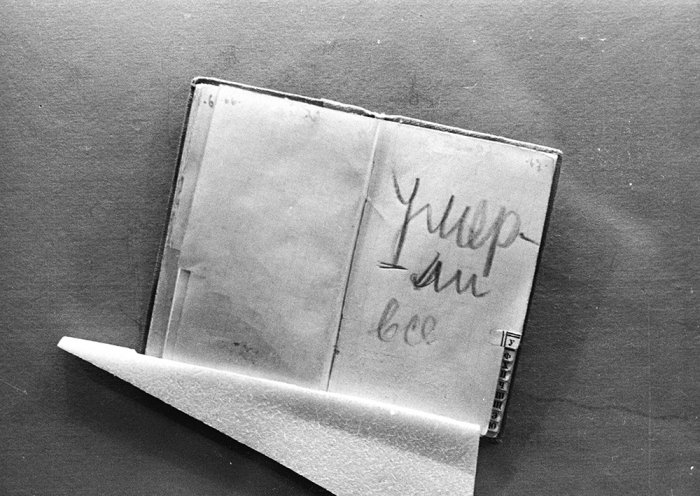 Умер-
ли
все
У